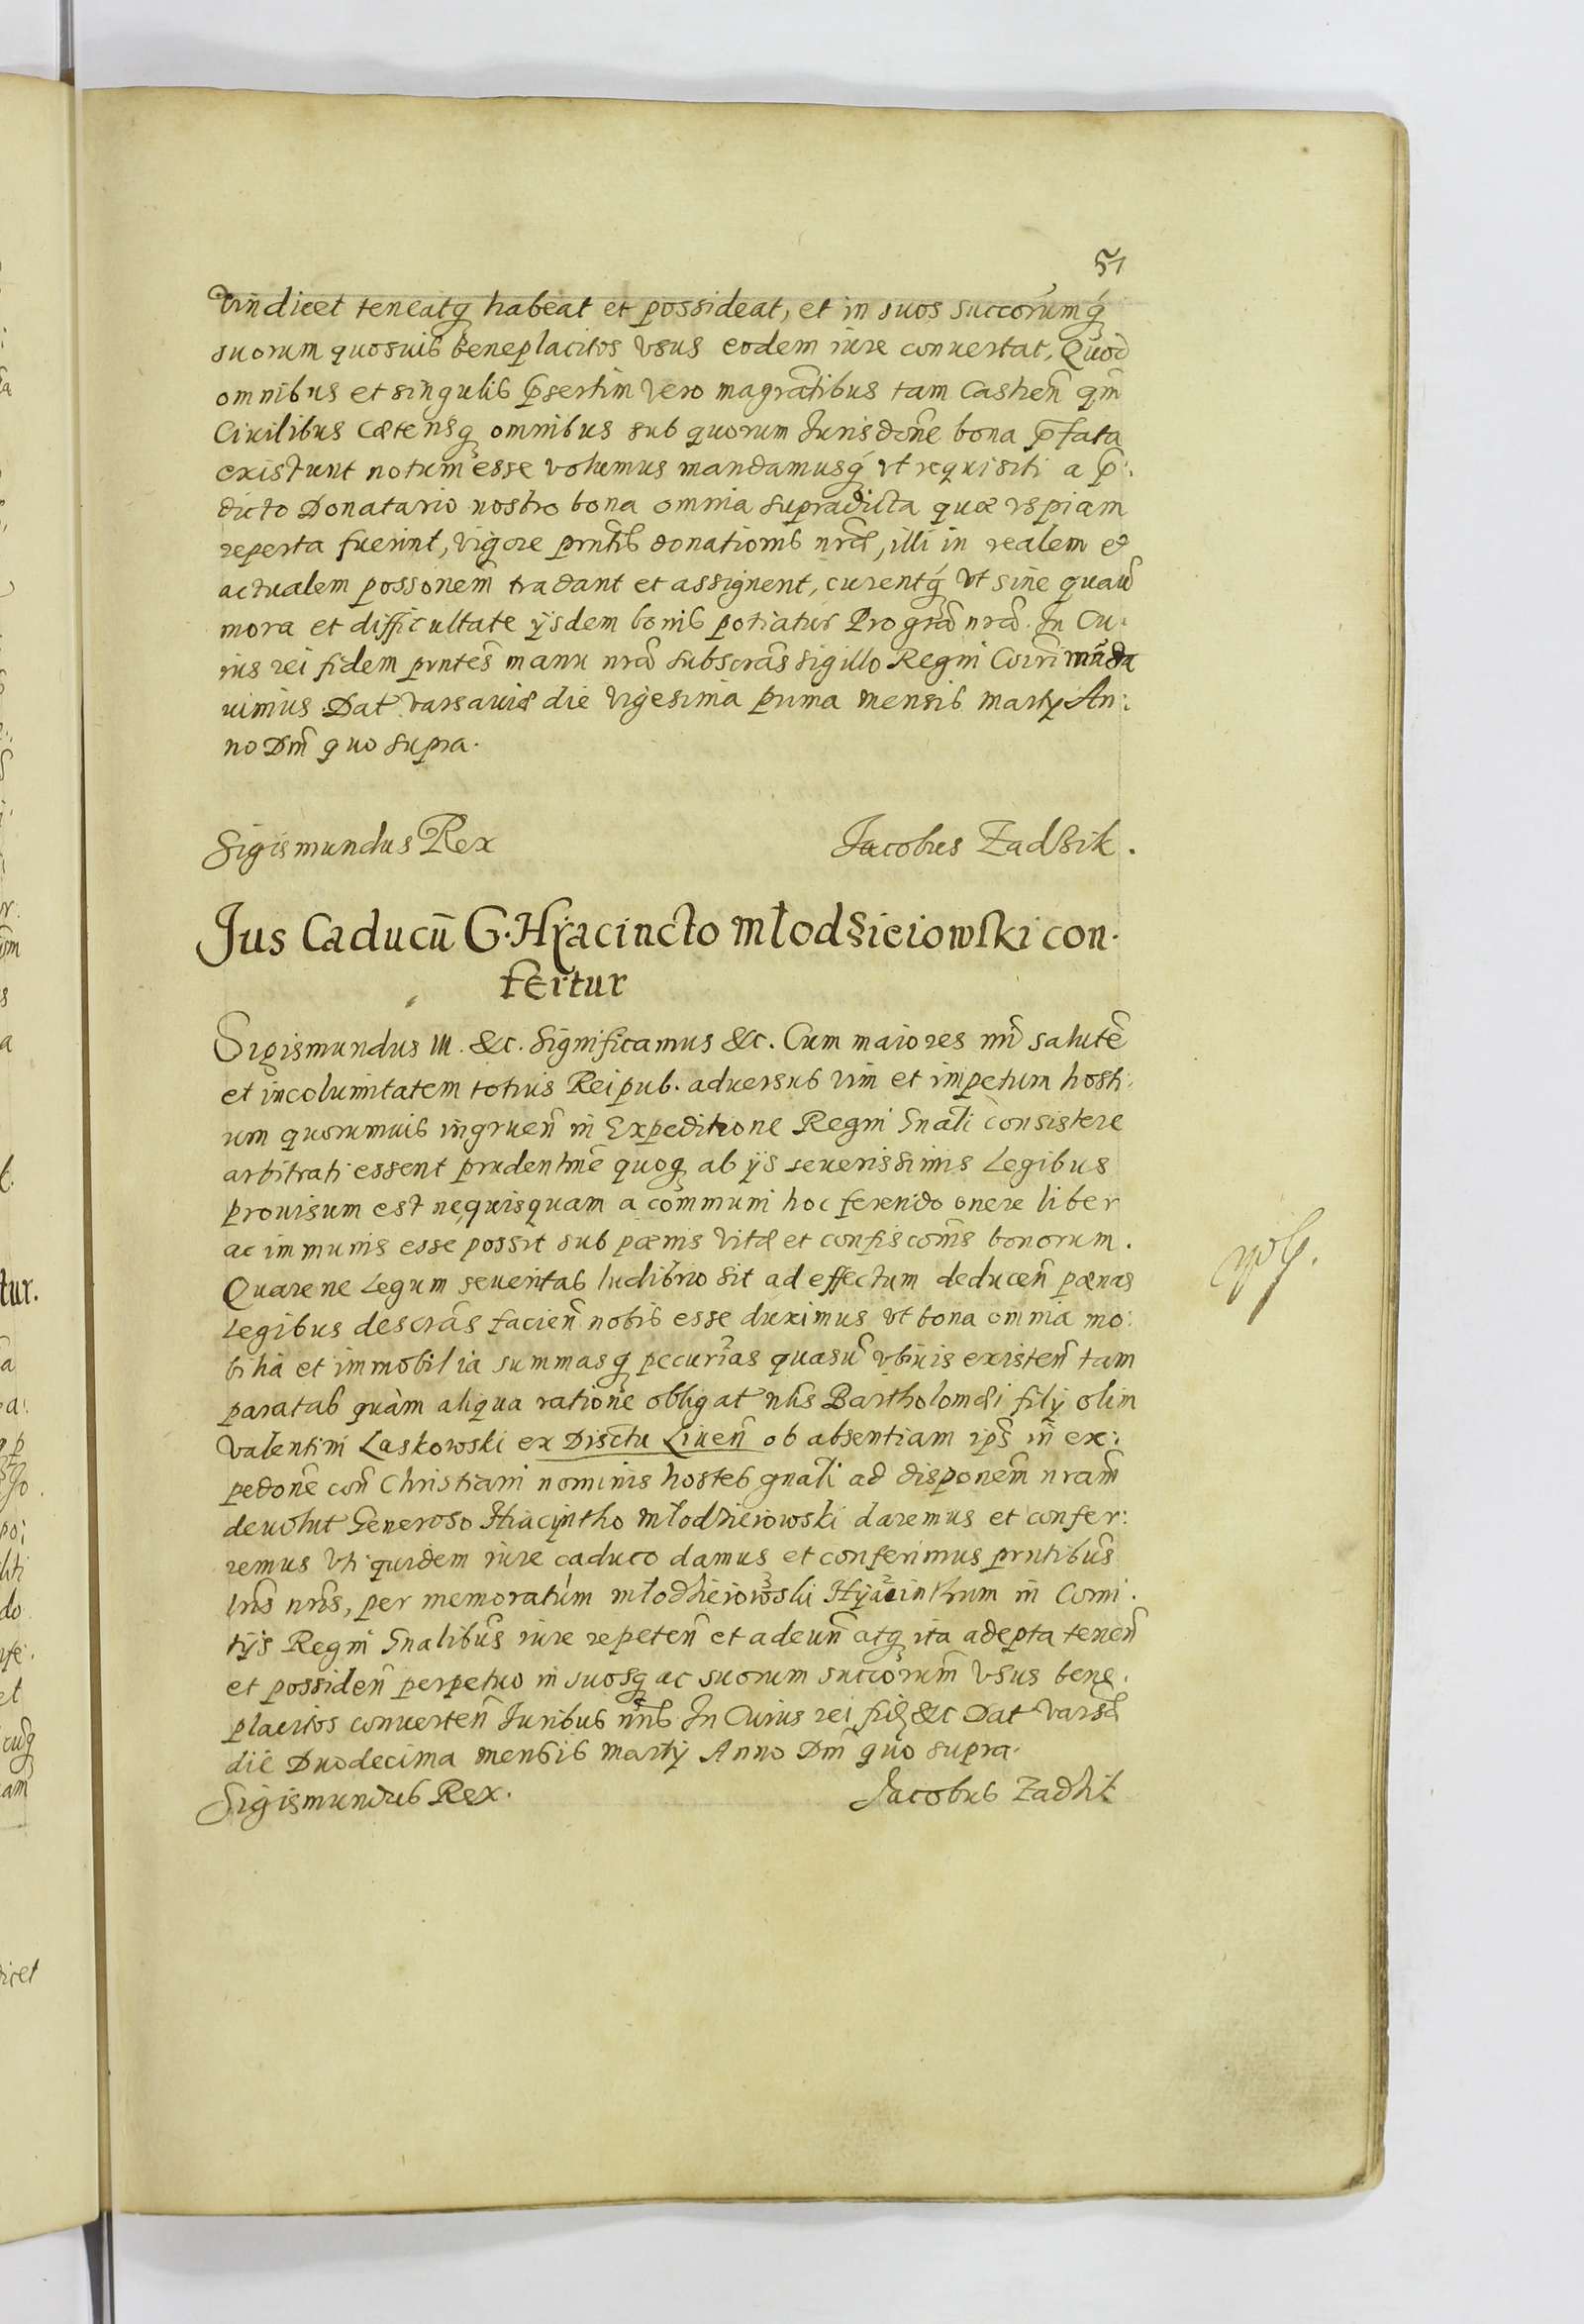 51
vindicet teneatq habeat et possideat, et in suos succorumq
suorum quosuis beneplacitos vsus eodem iure conuertat, Quod
omnibus et singulis psertim vero magratibus tam Castren qm
Ciuilibus Cæterisq omnibus sub quorum Jurisdone bona pfata
existunt notum esse volumus mandamusq vt requisiti a p:
dicto Donatario nostro bona omnia supradicta quæ vspiam
reperta fuerint, vigore prntis donationis nræ, illi in realem et
actualem possonem tradant et assignent, curentq vt sine quauis
mora et difficultate ijsdem bonis potiatur Pro gra nra. In Cu:
ius rei fidem prntes manu nra subscras sigillo Regni Coirimunda
uimus. Dat Varsauiæ die vigesima prima mensis Martij An:
no Dni quo supra.
Sigismundus Rex
Jacobus Zadzik.
Jus Caducū G. Hyacincto Młodzieiowski con.
fertur
Sigismundus III. &c. Significamus &c. Cum maiores nri salutē
et incolumitatem totius Reipub. aduersus vim et impetum hosti:
um quorumuis ingruen in Expeditione Regni Gnali consistere
arbitrati essent prudentme quoq ab ijs seuerissimis Legibus
prouisum est nequisquam a communi hoc ferendo onere liber
ac immunis esse possit sub pænis vitæ et confisconis bonorum.
Quare ne Legum seueritas ludibrio sit ad effectum deducen pænas
Legibus descras facien nobis esse duximus vt bona omnia mo:
bilia et immobilia summasq pecurias quasuis vbiuis existen tam
paratas quàm aliqua ratione obligat nlis Bartholomæi filij olim
Valentini Laskowski ex Disctu Liuen ob absentiam ips in ex:
pedone con Christiani nominis hostes gnali ad disponem nram
deuolut Generoso Hiacyntho Młodzieiowski daremus et confer:
remus vti quidem iure caduco damus et conferimus prntibus
lris nris, per memoratum Młodzieiowski Hyacinthum in Comi:
tijs Regni Gnalibus iure repeten et adeun atq ita adepta tenen
et possiden perpetuo in suosq ac suorum succorum vsus bene:
placitos conuerten Juribus nris In Cuius rei fid &c Dat Varsæ
die Duodecima mensis Martij Anno Dni quo supra.
Sigismundus Rex.
Jacobus Zadzik